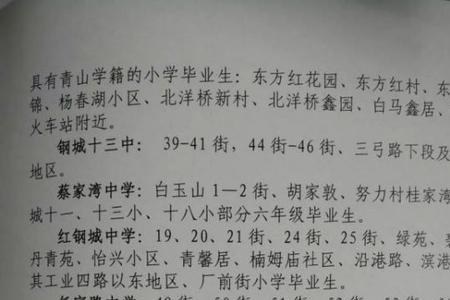 具有青山学籍的小学毕业生：东方红花园、东方红村、东
锦、杨春湖小区、北洋桥新村、北洋桥鑫园、白马鑫居、
火车站附近。
钢城十三中： 39-41 街，44 街-46 街、三弓路下段及
地区。
蔡家湾中学：白玉山 1—2 街、胡家敦、努力村桂家湾
城十一、十三小、十八小部分六年级毕业生。
红钢城中学：19、20、21 街、24 街、25 街、绿苑、
丹青苑、怡兴小区、青馨居、楠姆庙社区、沿港路、滨港
其工业四路以东地区、厂前街小学毕业生。